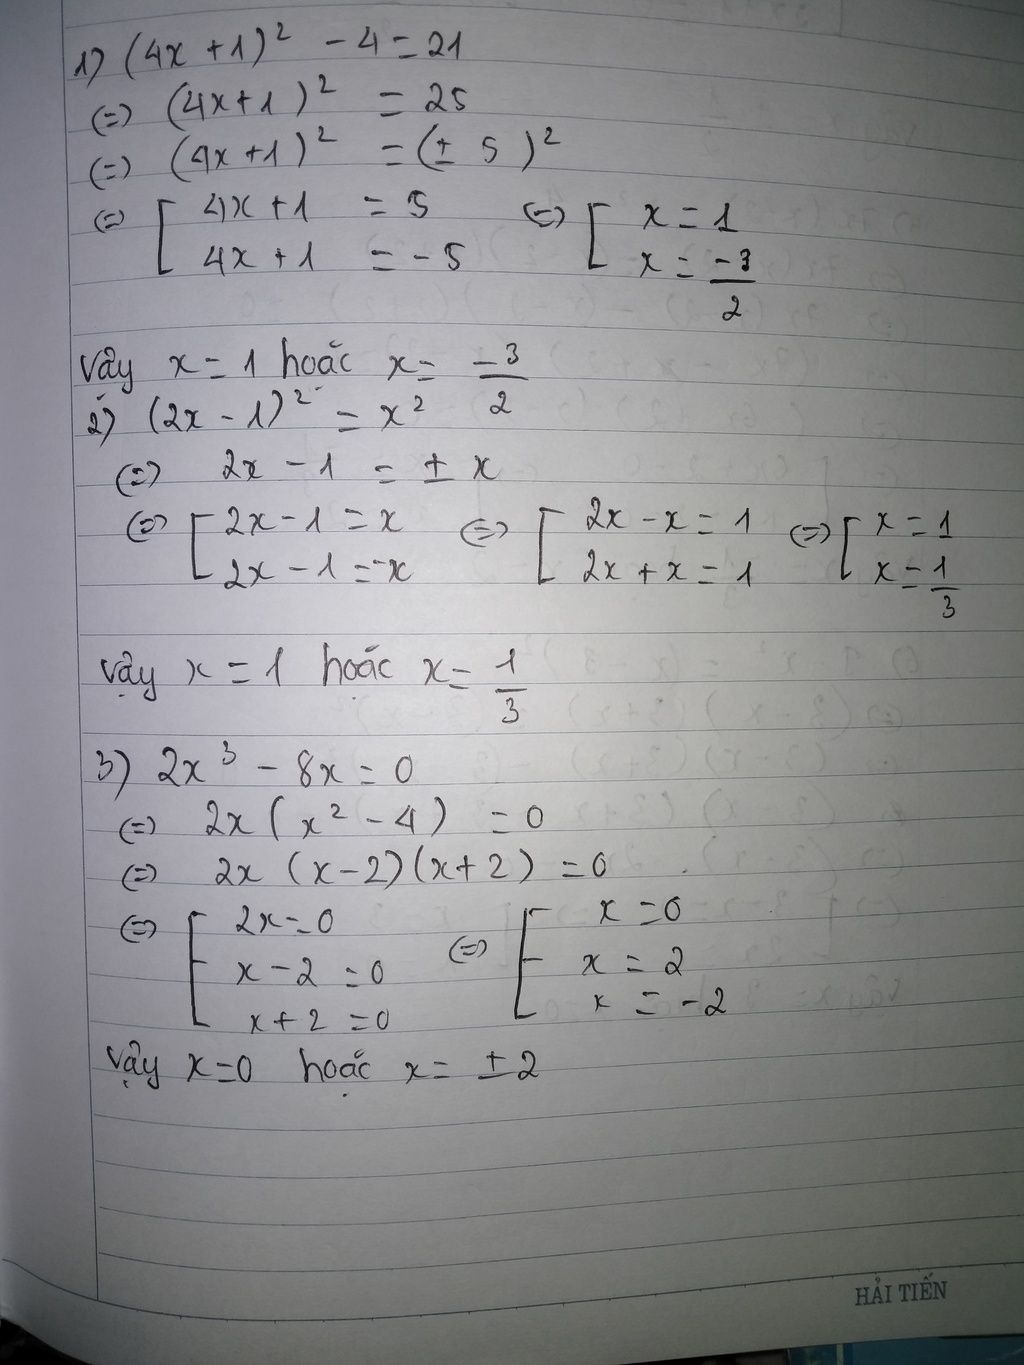 1) (4x + 1)² - 4 = 21
(=) (4x + 1)² = 25
(=) (4x + 1)² = (± 5)²
(=) [ 4x + 1 = 5 (=) [ x = 1
4x + 1 = - 5 x = -3/2
Vậy x = 1 hoặc x = -3/2
2) (2x - 1)² = x²
(=) 2x - 1 = ± x
(=) [ 2x - 1 = x (=) [ 2x - x = 1 (=) [ x = 1
2x - 1 = -x 2x + x = 1 x = 1/3
Vậy x = 1 hoặc x = 1/3
3) 2x³ - 8x = 0
(=) 2x (x² - 4) = 0
(=) 2x (x - 2)(x + 2) = 0
(=) [ 2x = 0 (=) [ x = 0
x - 2 = 0 x = 2
x + 2 = 0 x = -2
Vậy x = 0 hoặc x = ± 2
HẢI TIẾN